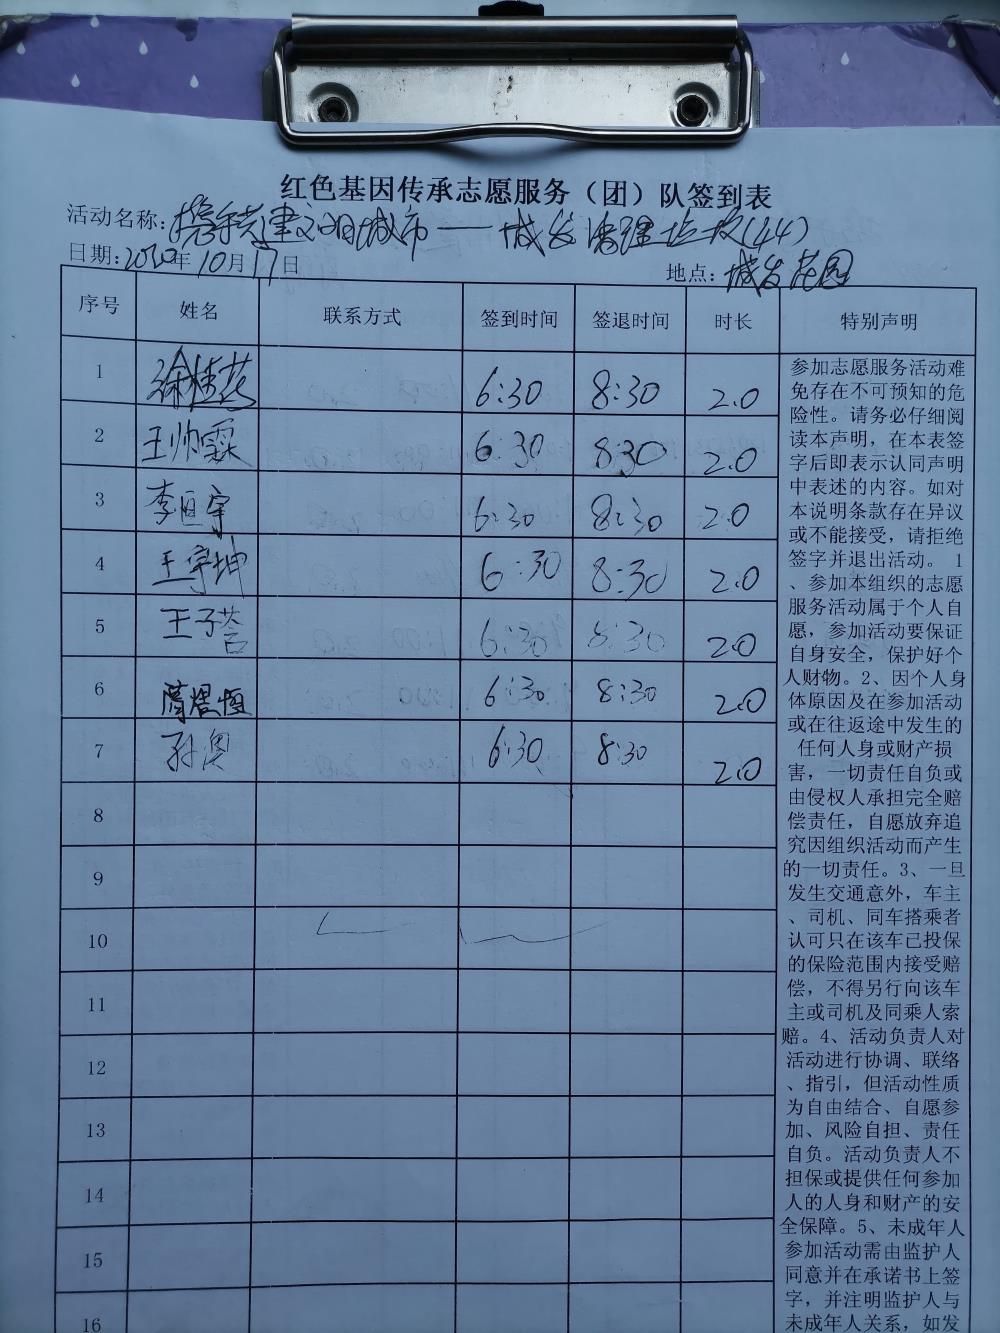 红色基因传承志愿服务（团）队签到表
活动名称：携手共建文明城市——城发清理垃圾(44)
日期：2020年10月17日 地点：城发花园
序号 姓名 联系方式 签到时间 签退时间 时长 特别声明
1 徐桂花 6:30 8:30 2.0
2 王帅霖 6:30 8:30 2.0
3 李恒宇 6:30 8:30 2.0
4 王宇坤 6:30 8:30 2.0
5 王子荅 6:30 8:30 2.0
6 蔺煜恒 6:30 8:30 2.0
7 孙澳 6:30 8:30 2.0
8
9
10
11
12
13
14
15
16
参加志愿服务活动难
免存在不可预知的危
险性。请务必仔细阅
读本声明，在本表签
字后即表示认同声明
中表述的内容。如对
本说明条款存在异议
或不能接受，请拒绝
签字并退出活动。 1
、参加本组织的志愿
服务活动属于个人自
愿，参加活动要保证
自身安全，保护好个
人财物。2、因个人身
体原因及在参加活动
或在往返途中发生的
任何人身或财产损
害，一切责任自负或
由侵权人承担完全赔
偿责任，自愿放弃追
究因组织活动而产生
的一切责任。3、一旦
发生交通意外，车主
、司机、同车搭乘者
认可只在该车已投保
的保险范围内接受赔
偿，不得另行向该车
主或司机及同乘人索
赔。4、活动负责人对
活动进行协调、联络
、指引，但活动性质
为自由结合、自愿参
加、风险自担、责任
自负。活动负责人不
担保或提供任何参加
人的人身和财产的安
全保障。5、未成年人
参加活动需由监护人
同意并在承诺书上签
字，并注明监护人与
未成年人关系，如发